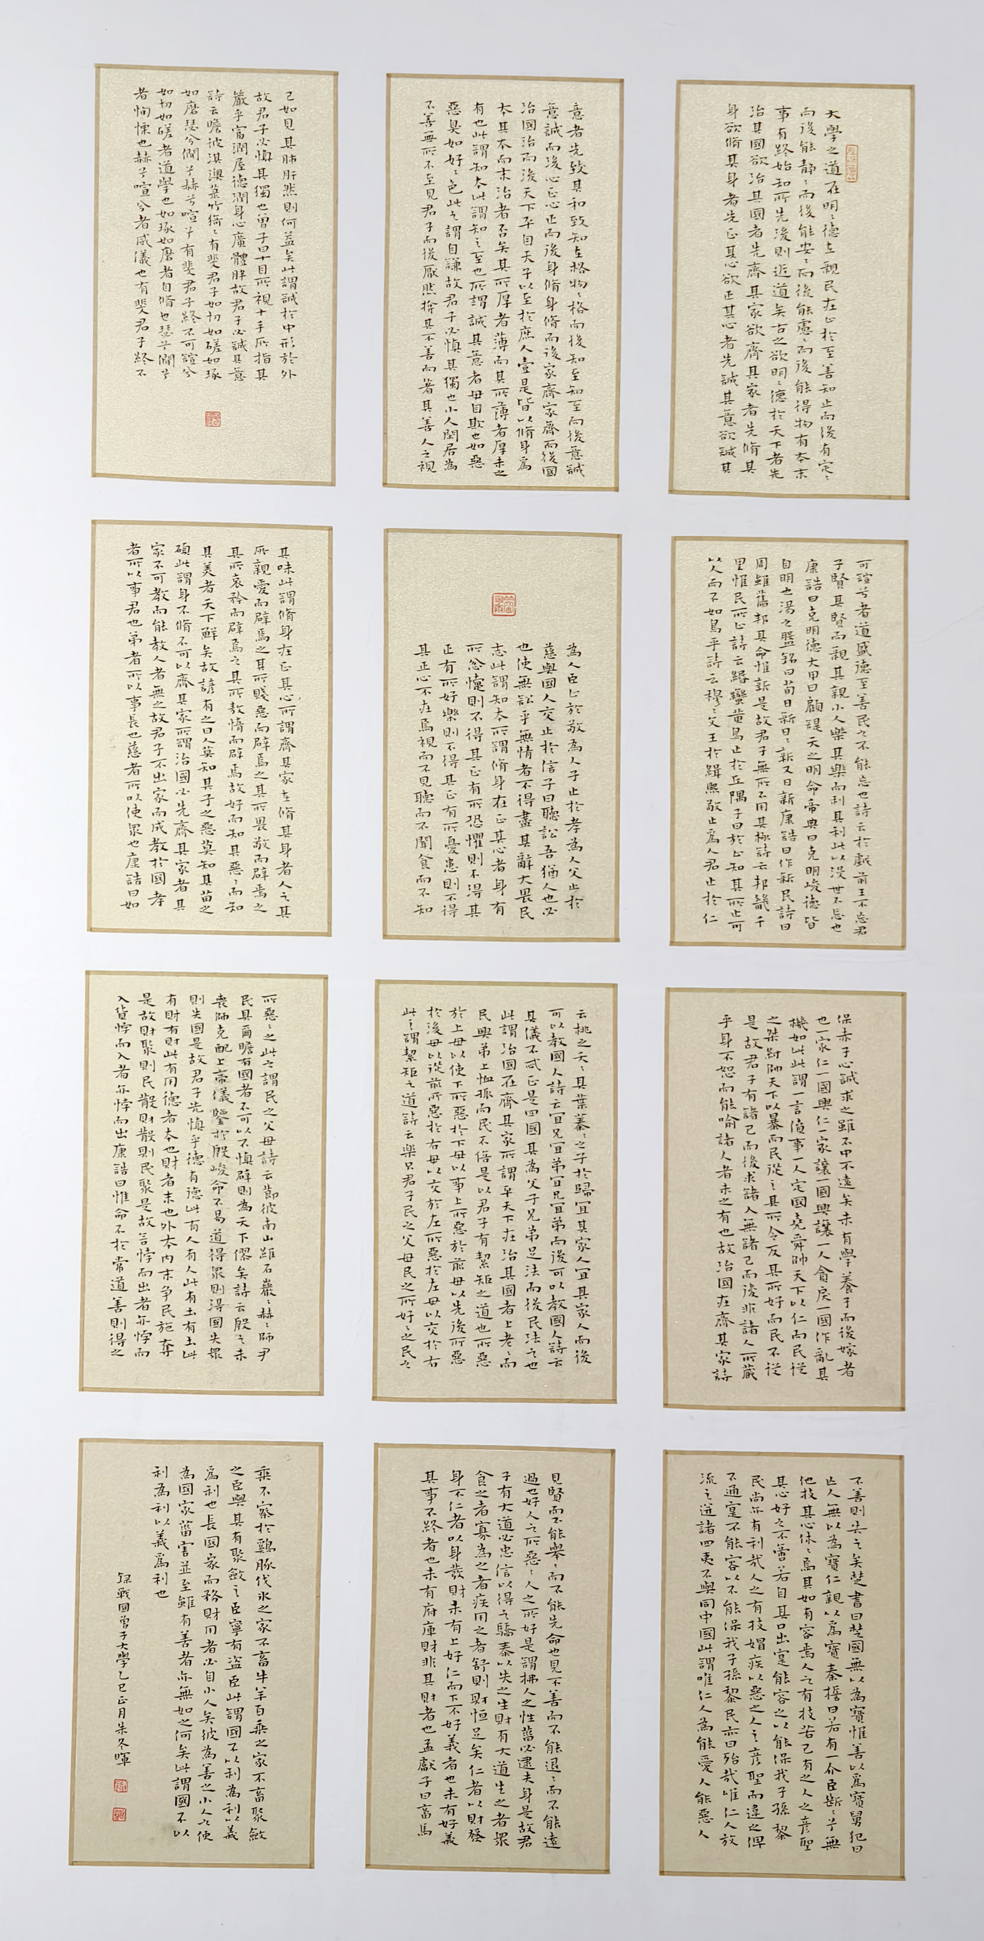 大學之道在明〻德在親民在止於至善知止而後有定〻
而後能靜〻而後能安〻而後能慮〻而後能得物有本末
事有終始知所先後則近道矣古之欲明〻德於天下者先
治其國欲治其國者先齊其家欲齊其家者先脩其
身欲脩其身者先正其心欲正其心者先誠其意欲誠其
意者先致其知致知在格物〻格而後知至知至而後意誠
意誠而後心正心正而後身脩身脩而後家齊家齊而後國
治國治而後天下平自天子以至於庶人壹是皆以脩身為
本其本而末治者否矣其所厚者薄而其所薄者厚未之
有也此謂知本此謂知之至也所謂誠其意者毋自欺也如惡
惡臭如好〻色此之謂自謙故君子必慎其獨也小人閒居為
不善無所不至見君子而後厭然揜其不善而著其善人之視
己如見其肺肝然則何益矣此謂誠於中形於外
故君子必慎其獨也曾子曰十目所視十手所指其
嚴乎富潤屋德潤身心廣體胖故君子必誠其意
詩云瞻彼淇澳菉竹猗〻有斐君子如切如磋如琢
如磨瑟兮僩兮赫兮喧兮有斐君子終不可諠兮
如切如磋者道學也如琢如磨者自脩也瑟兮僩兮
者恂慄也赫兮喧兮者威儀也有斐君子終不
可諠兮者道盛德至善民之不能忘也詩云於戲前王不忘君
子賢其賢而親其親小人樂其樂而利其利此以沒世不忘也
康誥曰克明德大甲曰顧諟天之明命帝典曰克明峻德皆
自明也湯之盤銘曰苟日新日〻新又日新康誥曰作新民詩曰
周雖舊邦其命惟新是故君子無所不用其極詩云邦畿千
里惟民所止詩云緡蠻黃鳥止於丘隅子曰於止知其所止可
以人而不如鳥乎詩云穆〻文王於緝熙敬止為人君止於仁
為人臣止於敬為人子止於孝為人父止於
慈與國人交止於信子曰聽訟吾猶人也必
也使無訟乎無情者不得盡其辭大畏民
志此謂知本所謂脩身在正其心者身有
所忿懥則不得其正有所恐懼則不得其
正有所好樂則不得其正有所憂患則不得
其正心不在焉視而不見聽而不聞食而不知
其味此謂脩身在正其心所謂齊其家在脩其身者人之其
所親愛而辟焉之其所賤惡而辟焉之其所畏敬而辟焉之
其所哀矜而辟焉之其所敖惰而辟焉故好而知其惡〻而知
其美者天下鮮矣故諺有之曰人莫知其子之惡莫知其苗之
碩此謂身不脩不可以齊其家所謂治國必先齊其家者其
家不可教而能教人者無之故君子不出家而成教於國孝
者所以事君也弟者所以事長也慈者所以使眾也康誥曰如
保赤子心誠求之雖不中不遠矣未有學養子而後嫁者
也一家仁一國興仁一家讓一國興讓一人貪戾一國作亂其
機如此此謂一言僨事一人定國堯舜帥天下以仁而民從
之桀紂帥天下以暴而民從之其所令反其所好而民不從
是故君子有諸己而後求諸人無諸己而後非諸人所藏
乎身不恕而能喻諸人者未之有也故治國在齊其家詩
云桃之夭〻其葉蓁〻之子於歸宜其家人宜其家人而後
可以教國人詩云宜兄宜弟宜兄宜弟而後可以教國人詩云
其儀不忒正是四國其為父子兄弟足法而後民法之也
此謂治國在齊其家所謂平天下在治其國者上老〻而
民興弟上恤孤而民不倍是以君子有絜矩之道也所惡
於上毋以使下所惡於下毋以事上所惡於前毋以先後所惡
於後毋以從前所惡於右毋以交於左所惡於左毋以交於右
此之謂絜矩之道詩云樂只君子民之父母民之所好〻之民之
所惡〻之此之謂民之父母詩云節彼南山維石巖〻赫〻師尹
民具爾瞻有國者不可以不慎辟則為天下僇矣詩云殷之未
喪師克配上帝儀鑒於殷峻命不易道得眾則得國失眾
則失國是故君子先慎乎德有德此有人有人此有土有土此
有財有財此有用德者本也財者末也外本內末爭民施奪
是故財聚則民散財散則民聚是故言悖而出者亦悖而
入貨悖而入者亦悖而出康誥曰惟命不於常道善則得之
不善則失之矣楚書曰楚國無以為寶惟善以為寶舅犯曰
亡人無以為寶仁親以為寶秦誓曰若有一介臣斷〻兮無
他技其心休〻焉其如有容焉人之有技若己有之人之彥聖
其心好之不啻若自其口出寔能容之以能保我子孫黎
民尚亦有利哉人之有技媢疾以惡之人之彥聖而違之俾
不通寔不能容以不能保我子孫黎民亦曰殆哉唯仁人放
流之迸諸四夷不與同中國此謂唯仁人為能愛人能惡人
見賢而不能舉〻而不能先命也見不善而不能退〻而不能遠
過也好人之所惡〻人之所好是謂拂人之性菑必逮夫身是故君
子有大道必忠信以得之驕泰以失之生財有大道生之者眾
食之者寡為之者疾用之者舒則財恒足矣仁者以財發
身不仁者以身發財未有上好仁而下不好義者也未有好義
其事不終者也未有府庫財非其財者也孟獻子曰畜馬
乘不察於雞豚伐冰之家不畜牛羊百乘之家不畜聚斂
之臣與其有聚斂之臣寧有盜臣此謂國不以利為利以義
為利也長國家而務財用者必自小人矣彼為善之小人之使
為國家菑害並至雖有善者亦無如之何矣此謂國不以
利為利以義為利也
錄戰國曾子大學乙巳正月朱冬暉